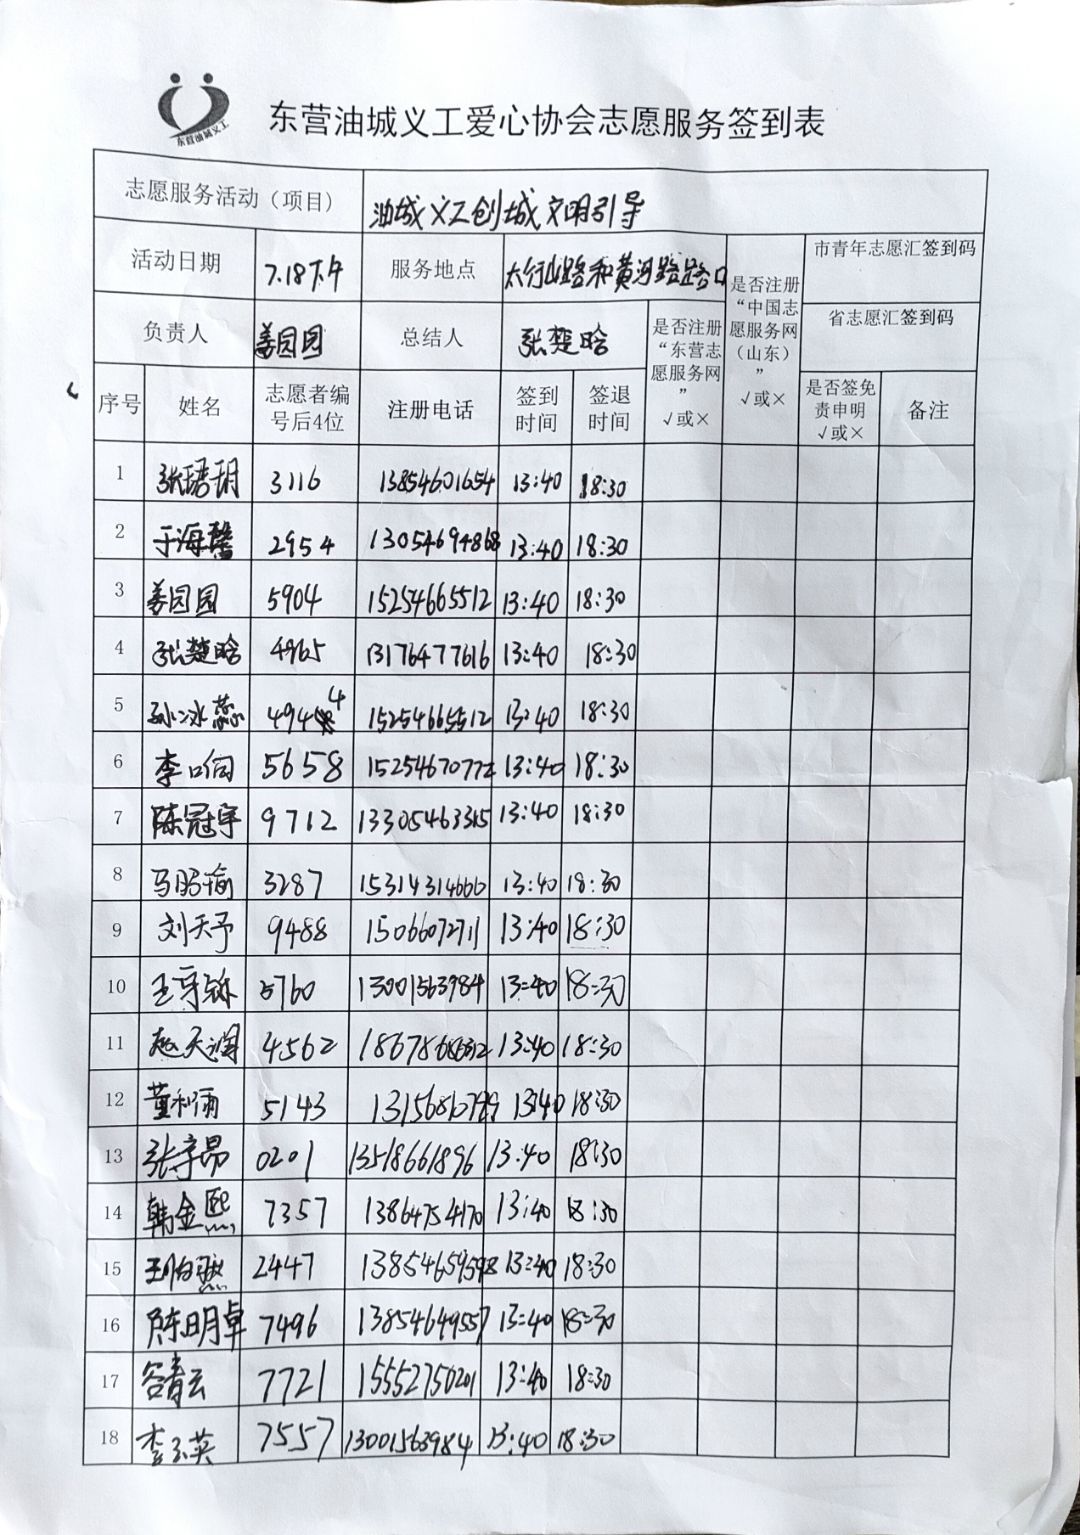 东营油城义工
东营油城义工爱心协会志愿服务签到表
志愿服务活动（项目） 油城义工创城文明引导
活动日期 7.18下午 服务地点 太行山路和黄河路路口 是否注册“中国志愿服务网（山东）”√或× 市青年志愿汇签到码
省志愿汇签到码
负责人 姜园园 总结人 张楚晗 是否注册“东营志愿服务网”√或×
序号 姓名 志愿者编号后4位 注册电话 签到时间 签退时间 是否签免责申明√或× 备注
1 张珺玥 3116 13854601654 13:40 18:30
2 于海馨 2954 13054694868 13:40 18:30
3 姜园园 5904 15254665512 13:40 18:30
4 张楚晗 4965 13176477616 13:40 18:30
5 孙冰蕊 4944 15254665512 13:40 18:30
6 李 5658 15254670772 13:40 18:30
7 陈冠宇 9712 13305463315 13:40 18:30
8 马 3287 15314314666 13:40 18:30
9 刘天予 9488 15066072711 13:40 18:30
10 王 5760 13001563984 13:40 18:30
11 赵天润 4562 13:40 18:30
12 董和雨 5143 13:40 18:30
13 张宇昂 0201 13518661896 13:40 18:30
14 韩金熙 7357 13864754170 13:40 18:30
15 2447 13:40 18:30
16 陈明卓 7496 13854649557 13:40 18:30
17 谷青云 7721 15552750201 13:40 18:30
18 李玉英 7557 13001563984 13:40 18:30